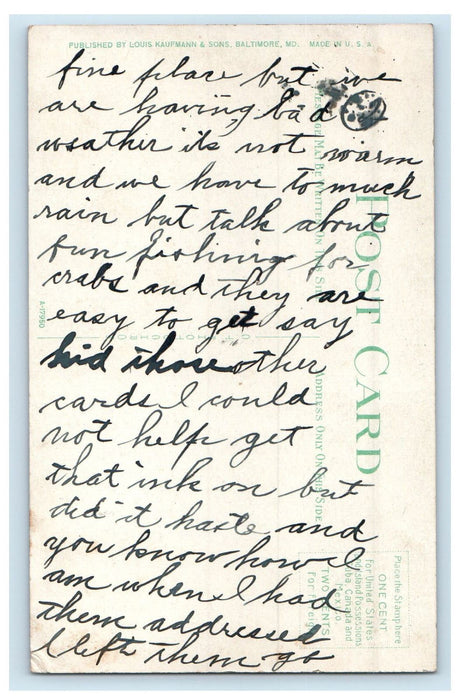 PUBLISHED BY LOUIS KAUFMANN & SONS, BALTIMORE, MD. MADE IN U. S. A.
fine place but we
are having bad
weather its not warm
and we have to much
rain but talk about
fun fishing for
crabs and they are
easy to get say
kid those other
cards I could
not help get
that ink on but
did it haste and
you know how I
am when I had
them addressed
I left them go
POST CARD
MESSAGE MAY BE WRITTEN ON THIS SIDE
ADDRESS ONLY ON THIS SIDE
A-17950
Place the Stamp here
ONE CENT
for United States
and Island Possessions
Cuba, Canada and
Mexico.
TWO CENTS
For Foreign